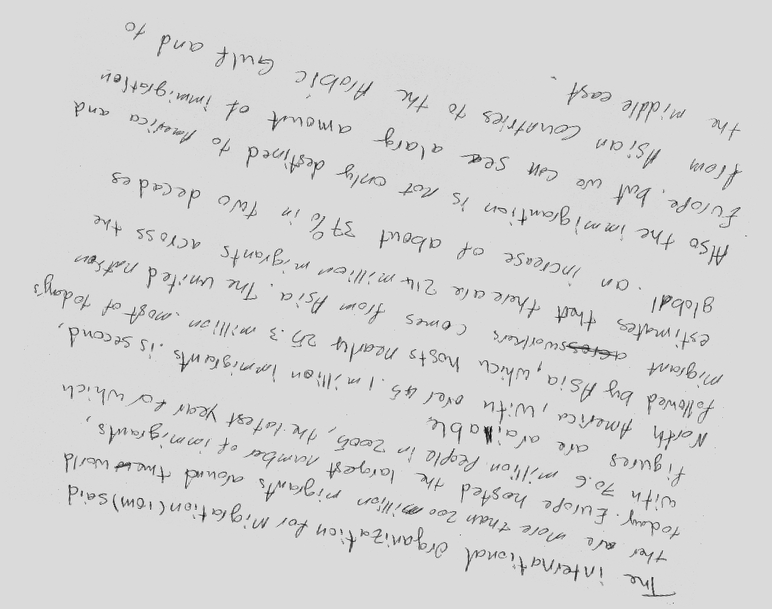 The international organization for Migration (IOM) said
ther are more than 200 million migrants around the world
today. Europe hosted the largest number of immigrants,
with 70.6 million people in 2005, the latest year for which
figures are available
North America, with over 45.1 million immigrants. is second,
followed by Asia, which hosts nearly 25.3 million. most of today's
migrant workers comes from Asia. The united nation
estimates that there are 214 million migrants across the
global. an increase of about 37% in two decades
Also the immigrantion is not only destined to America and
Europe. but we can see alarg amount of immigration
from Asian countries to the Arabic Gulf and to
the middle east.